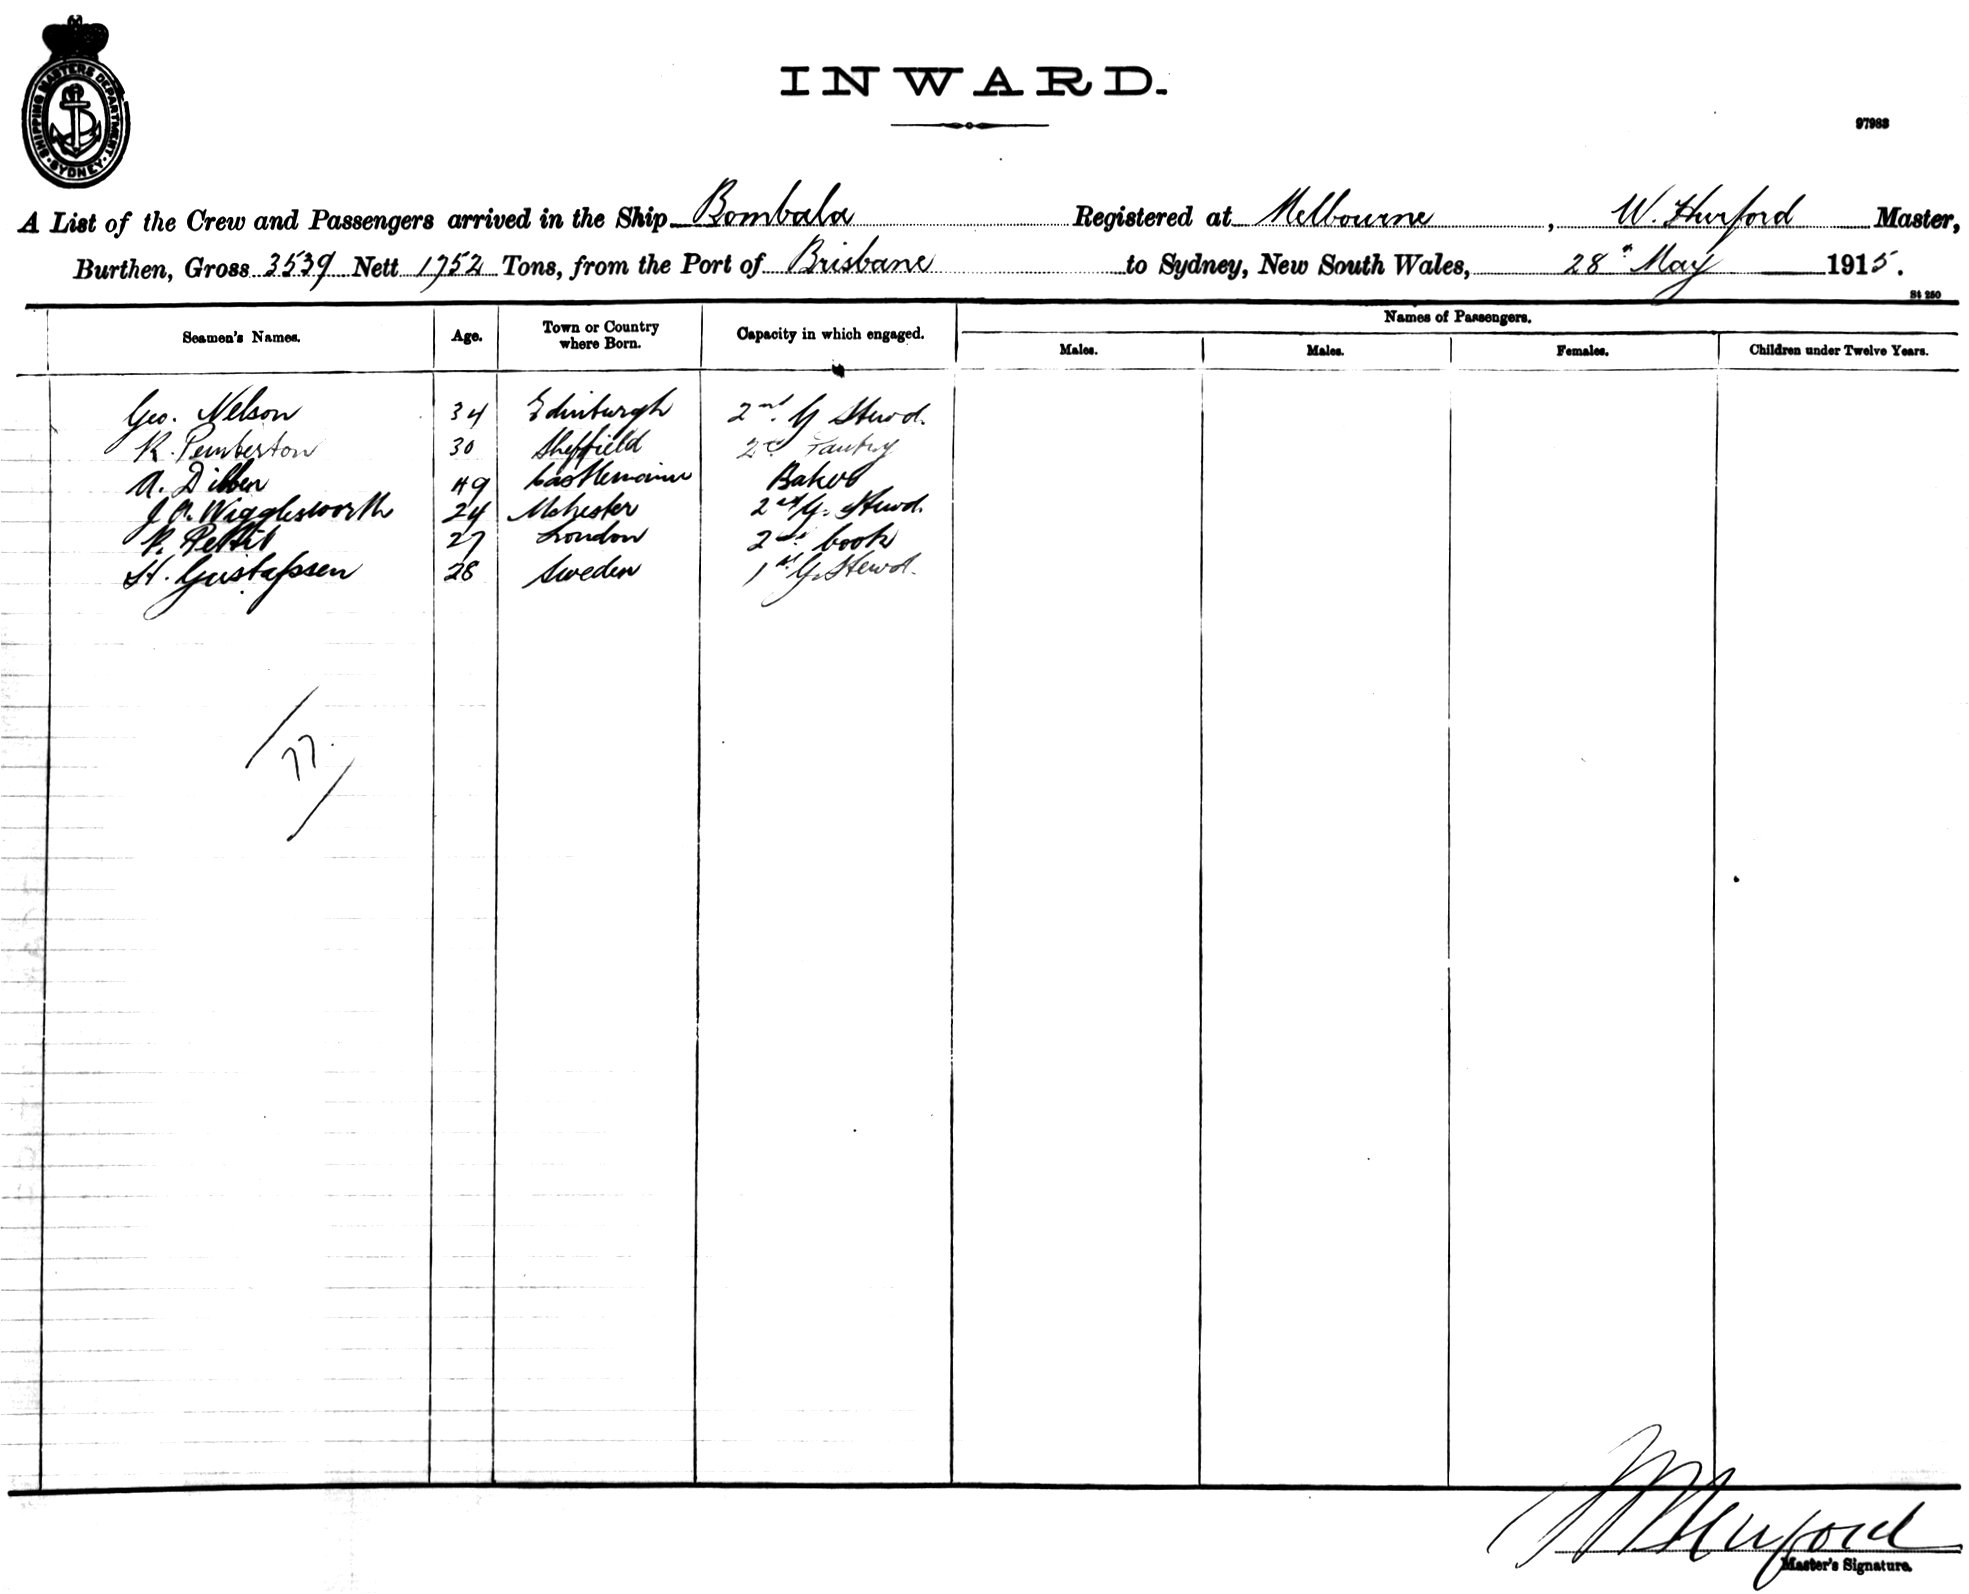 SHIPPING MASTERS DEPARTMENT · SYDNEY ·
INWARD.
97983
A List of the Crew and Passengers arrived in the Ship Bombala Registered at Melbourne, W. Hurford Master,
Burthen, Gross 3539 Nett 1752 Tons, from the Port of Brisbane to Sydney, New South Wales, 28th May 1915.
St 250
Names of Passengers.
Seamen's Names. Age. Town or Country where Born. Capacity in which engaged. Males. Males. Females. Children under Twelve Years.
Geo. Nelson 34 Edinburgh 2nd G Stewd.
R. Pemberton 30 Sheffield 2nd Pantry
A. 49 Castlemaine Baker
J A. Wigglesworth 24 Mchester 2nd G. Stewd.
Pettit 27 London 2nd Cook
H. Gustafssen 28 Sweden 1st G. Stewd.
77.
W Hurford
Master's Signature.